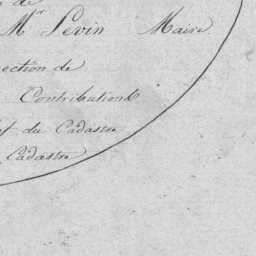 de
Mr Sevin Maire
ection de
Contributions
ef du Cadastre
Cadastre